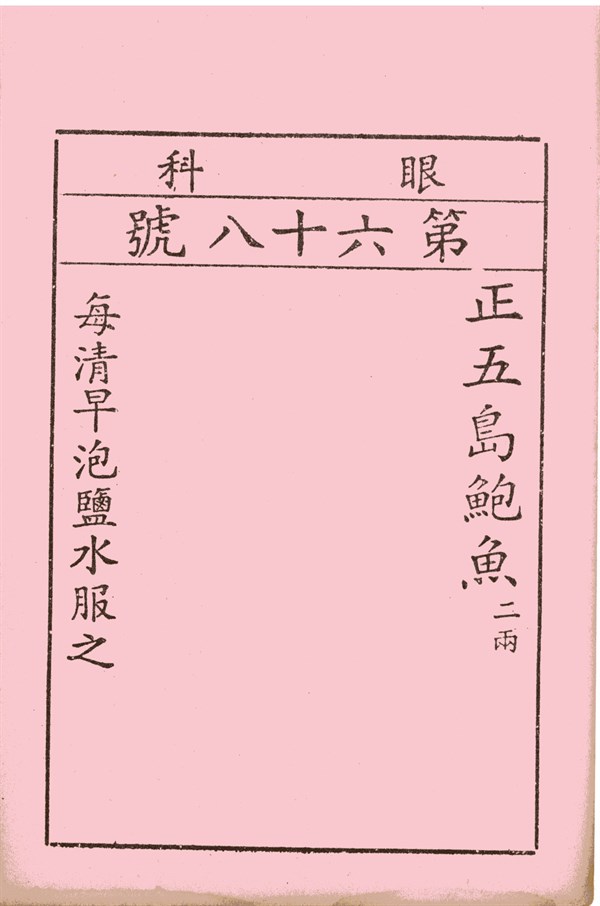 眼科
第六十八號
正五島鮑魚二兩
每清早泡鹽水服之